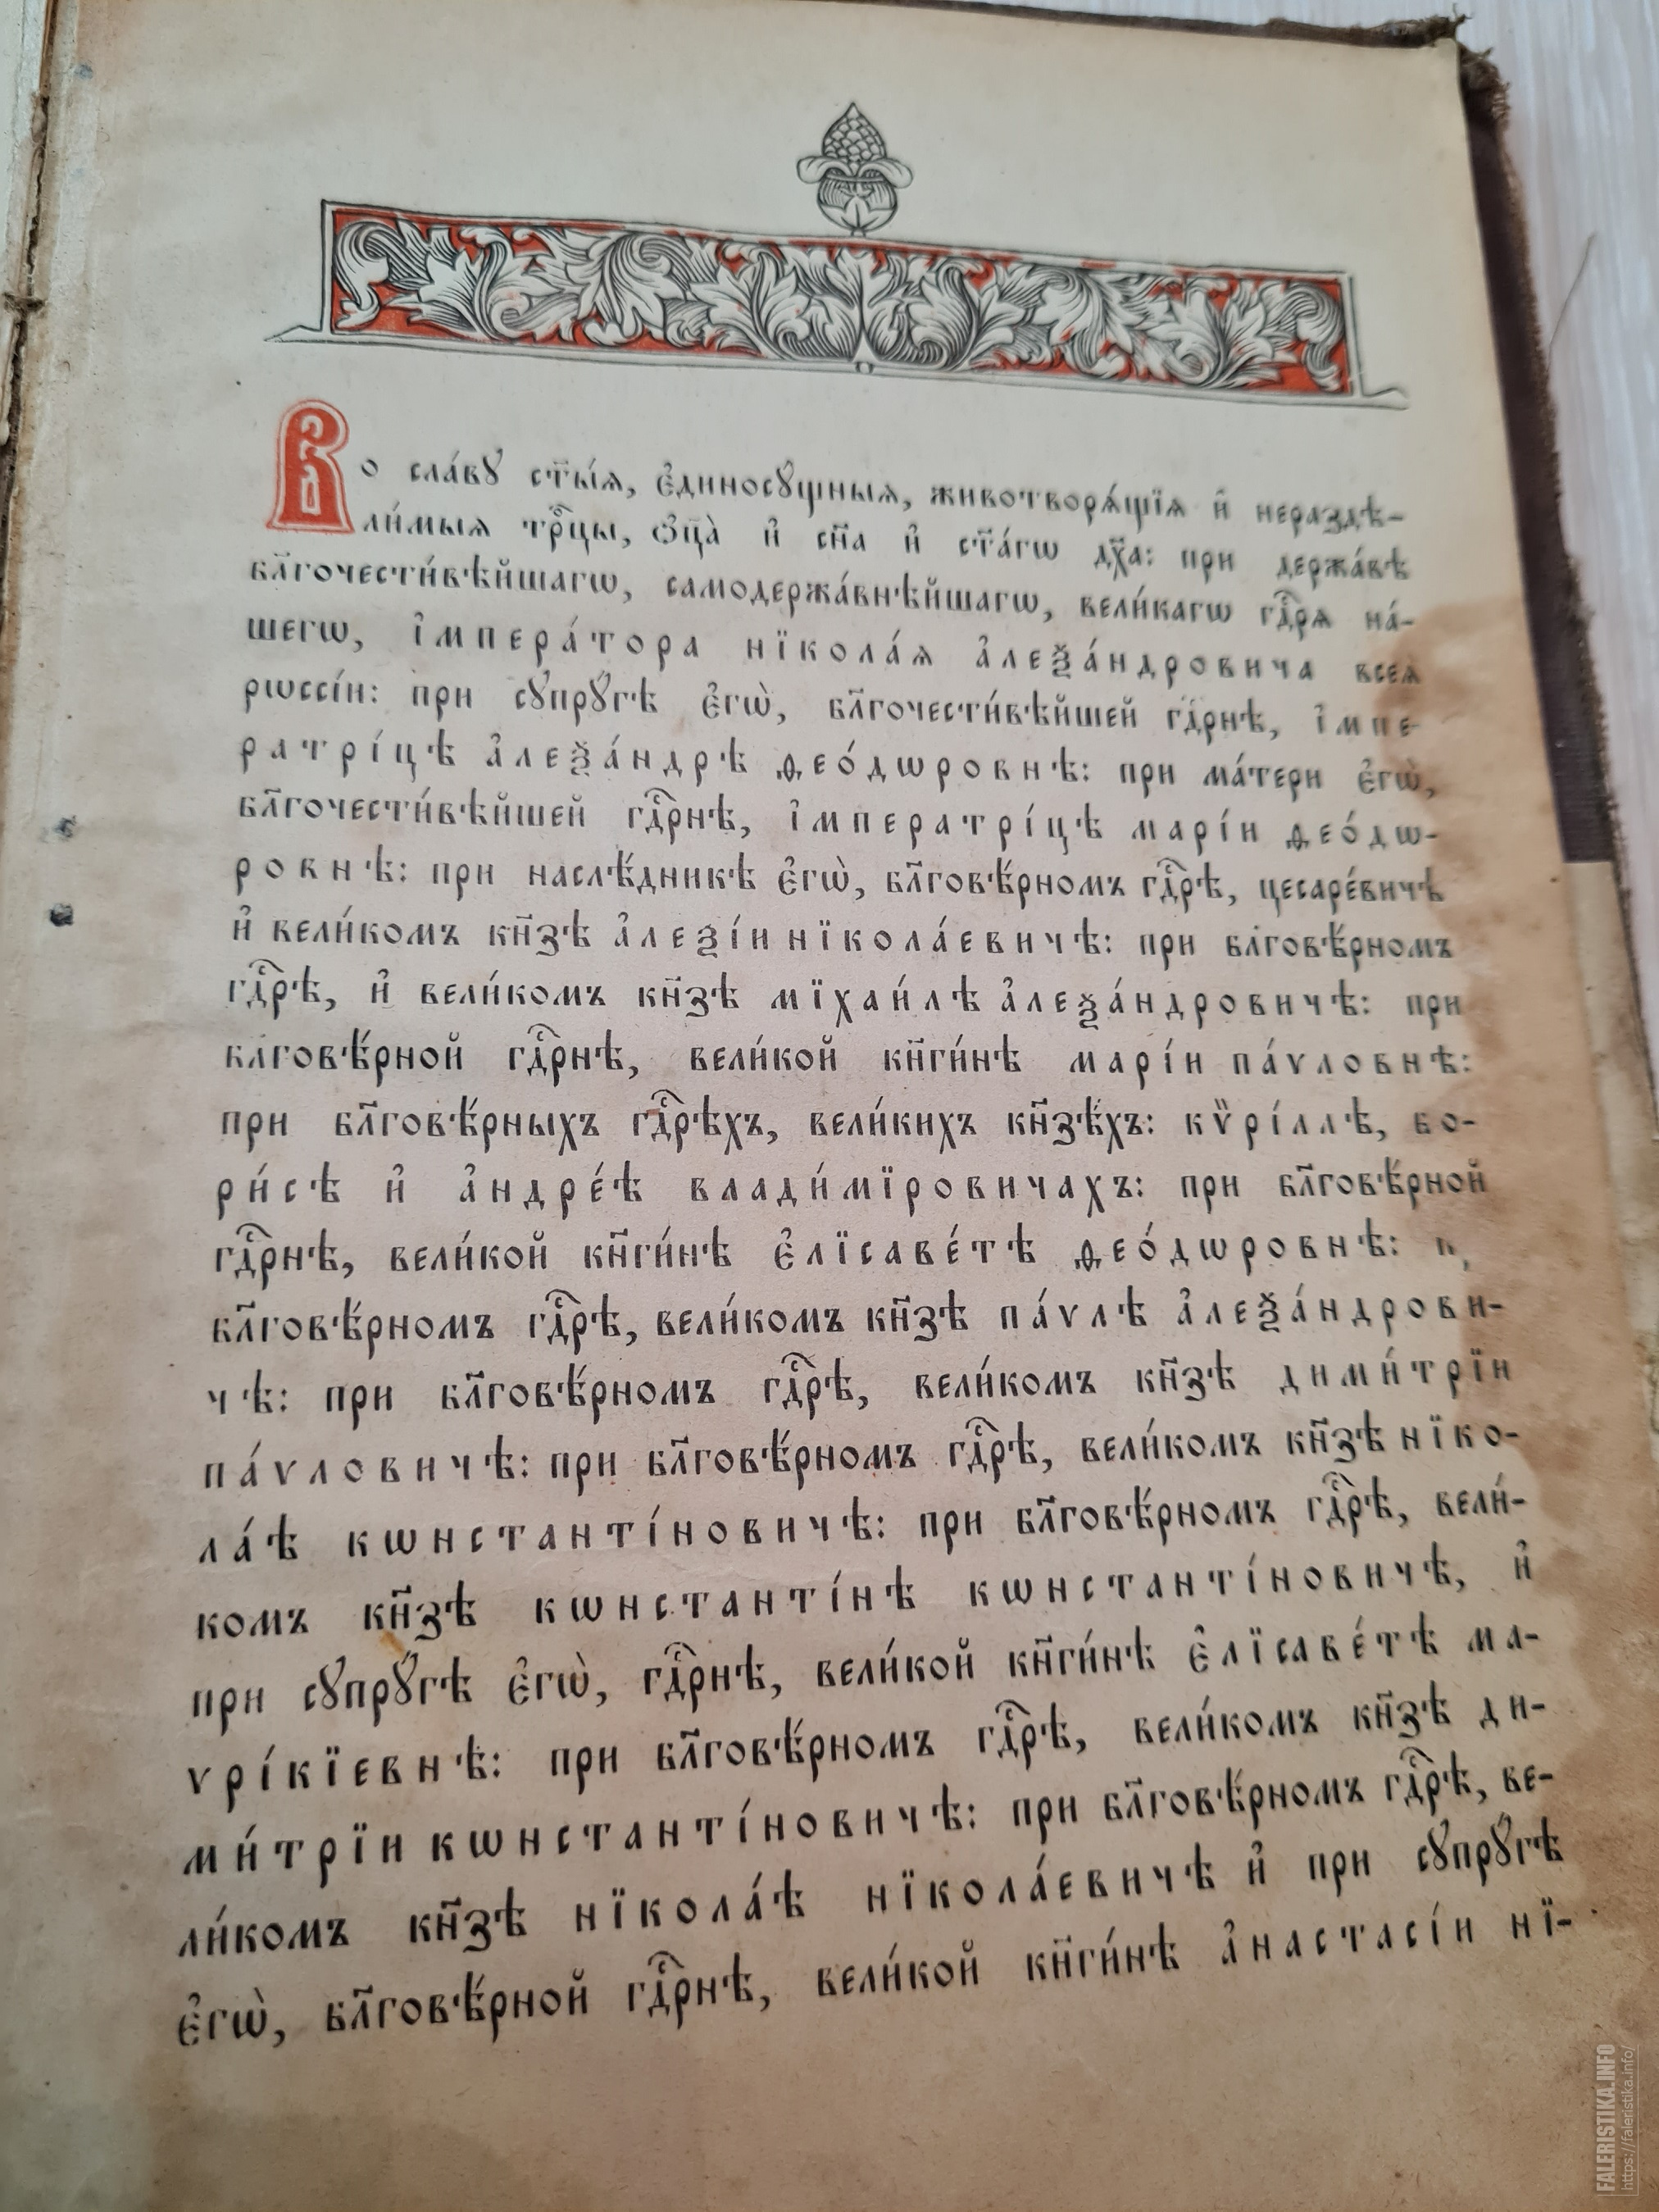 Во сла́вꙋ ст҃ы́ѧ, є҆диносꙋ́щныѧ, животворѧ́щїѧ и҆ нераздѣ-
ли́мыѧ трⷪ҇цы, ѻ҆ц҃а̀ и҆ сн҃а и҆ ст҃а́гѡ дх҃а: при держа́вѣ
бл҃гочести́вѣйшагѡ, самодержа́внѣйшагѡ, вели́кагѡ гдⷭ҇рѧ на́-
шегѡ, і҆мпера́тора нїкола́ѧ а҆леѯа́ндровича всеѧ
рѡссі́и: при сꙋпрꙋ́гѣ є҆гѡ̀, бл҃гочести́вѣйшей гдⷭ҇рнѣ, і҆мпе-
ратрі́цѣ а҆леѯа́ндрѣ ѳео́дѡровнѣ: при ма́тери є҆гѡ̀,
бл҃гочести́вѣйшей гдⷭ҇рнѣ, і҆мператрі́цѣ марі́и ѳео́дѡ-
ровнѣ: при наслѣ́дникѣ є҆гѡ̀, бл҃говѣ́рномъ гдⷭ҇рѣ, цесаре́вичѣ
и҆ вели́комъ кн҃зѣ а҆леѯі́и нїкола́евичѣ: при бл҃говѣ́рномъ
гдⷭ҇рѣ, и҆ вели́комъ кн҃зѣ мїхаи́лѣ а҆леѯа́ндровичѣ: при
бл҃говѣ́рной гдⷭ҇рнѣ, вели́кой кн҃ги́нѣ марі́и па́ѵловнѣ:
при бл҃говѣ́рныхъ гдⷭ҇рѣхъ, вели́кихъ кн҃зѣ́хъ: кѷрі́ллѣ, бо-
ри́сѣ и҆ а҆ндре́ѣ влади́мїровичахъ: при бл҃говѣ́рной
гдⷭ҇рнѣ, вели́кой кн҃ги́нѣ є҆лїсаве́тѣ ѳео́дѡровнѣ:
бл҃говѣ́рномъ гдⷭ҇рѣ, вели́комъ кн҃зѣ па́ѵлѣ а҆леѯа́ндрови-
чѣ: при бл҃говѣ́рномъ гдⷭ҇рѣ, вели́комъ кн҃зѣ дими́трїи
па́ѵловичѣ: при бл҃говѣ́рномъ гдⷭ҇рѣ, вели́комъ кн҃зѣ нїко-
ла́ѣ кѡнстанті́новичѣ: при бл҃говѣ́рномъ гдⷭ҇рѣ, вели́-
комъ кн҃зѣ кѡнстанті́нѣ кѡнстанті́новичѣ, и҆
при сꙋпрꙋ́гѣ є҆гѡ̀, гдⷭ҇рнѣ, вели́кой кн҃ги́нѣ є҆лїсаве́тѣ ма-
ѵрі́кїевнѣ: при бл҃говѣ́рномъ гдⷭ҇рѣ, вели́комъ кн҃зѣ ди-
ми́трїи кѡнстанті́новичѣ: при бл҃говѣ́рномъ гдⷭ҇рѣ, ве-
ли́комъ кн҃зѣ нїкола́ѣ нїкола́евичѣ и҆ при сꙋпрꙋ́гѣ
є҆гѡ̀, бл҃говѣ́рной гдⷭ҇рнѣ, вели́кой кн҃ги́нѣ а҆настасі́и нї-
FALERISTIKA.INFO
https://faleristika.info/